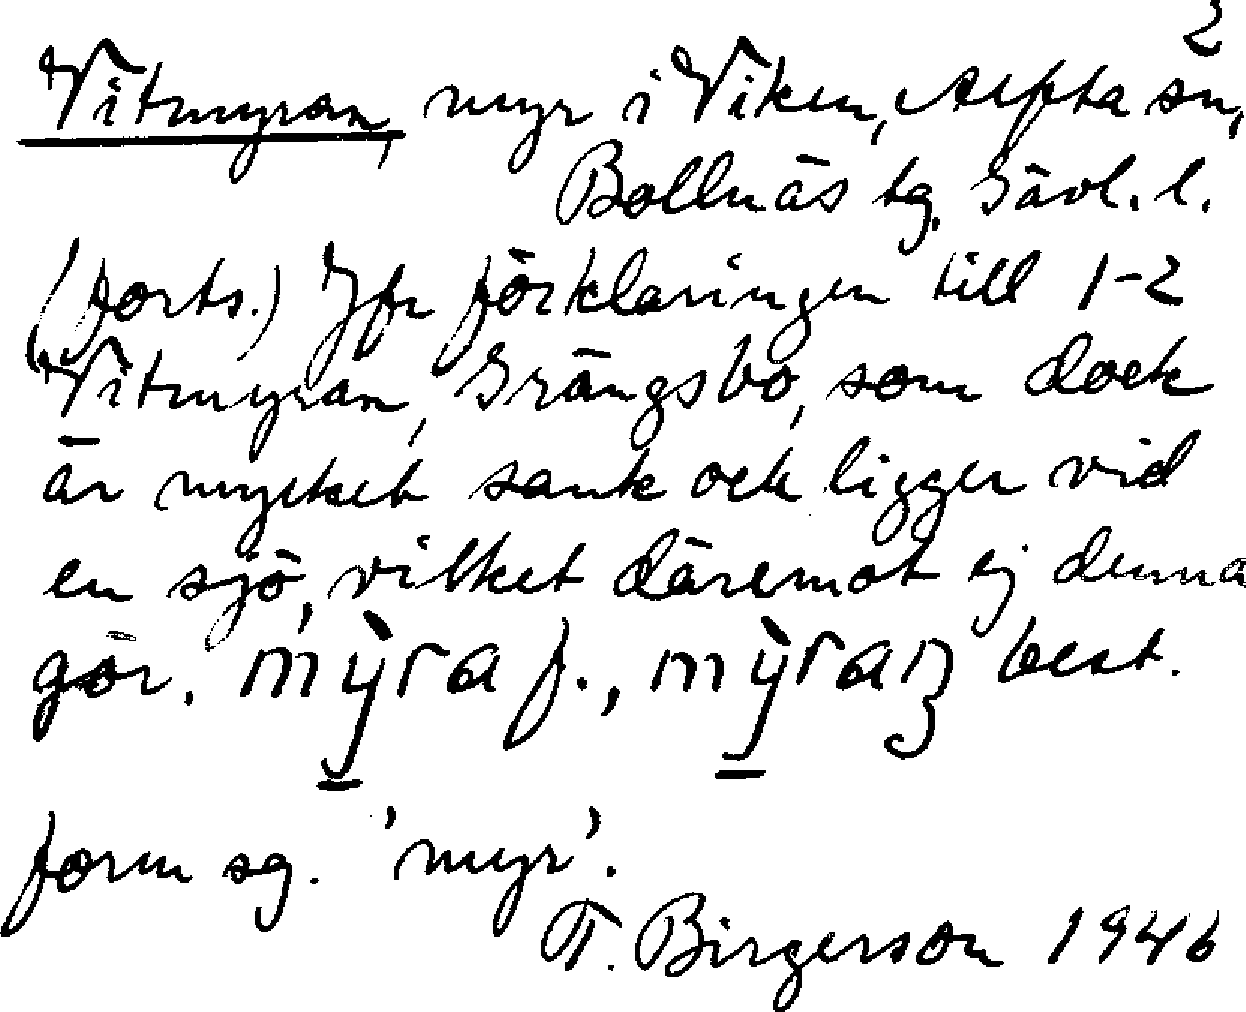 2
Vitmyran, myr i Viken, Alfta sn,
Bollnäs tg. Gävl. l.
(forts.) Jfr förklaringen till 1-2
Vitmyran, Grängsbo, som dock
är mycket sank och ligger vid
en sjö, vilket däremot ej denna
gör. mỳra f., mỳraɳ best.
form sg. 'myr'.
T. Birgerson 1946